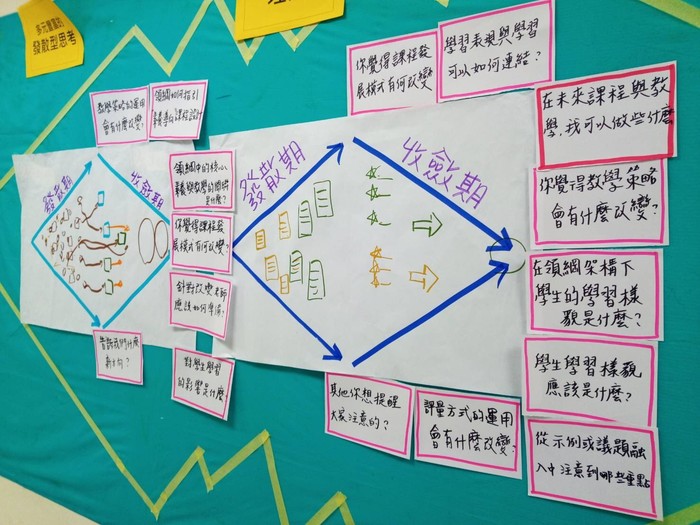 多元豐富的
發散型思考
教學策略的運用
會有什麼改變?
領綱如何指引
素養導向課程設計
領綱中的核心
素養與教學的關時
是什麼?
你覺得課程發
展模式有何改變?
針對改變老師
應該如何準備?
對學生學習
的影響是什麼
告訴我們什麼
新方向?
發散期
收斂期
發散期
收斂期
你覺得課程發
展模式有何改變
學習表現與學習
可以如何連結?
在未來課程與教
學,我可以做些什麼
你覺得教學策略
會有什麼改變?
在領綱架構下
學生的學習樣
貌是什麼?
學生學習樣貌
應該是什麼?
從示例或議題融
入中注意到哪些重點
其他你想提醒
大家注意的?
評量方式的運用
會有什麼改變?